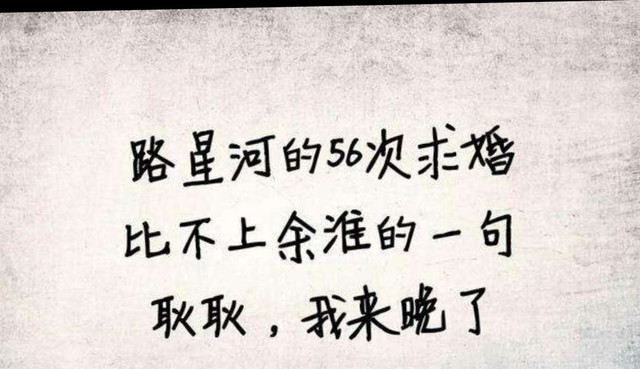 路星河的56次求婚
比不上余淮的一句
耿耿，我来晚了